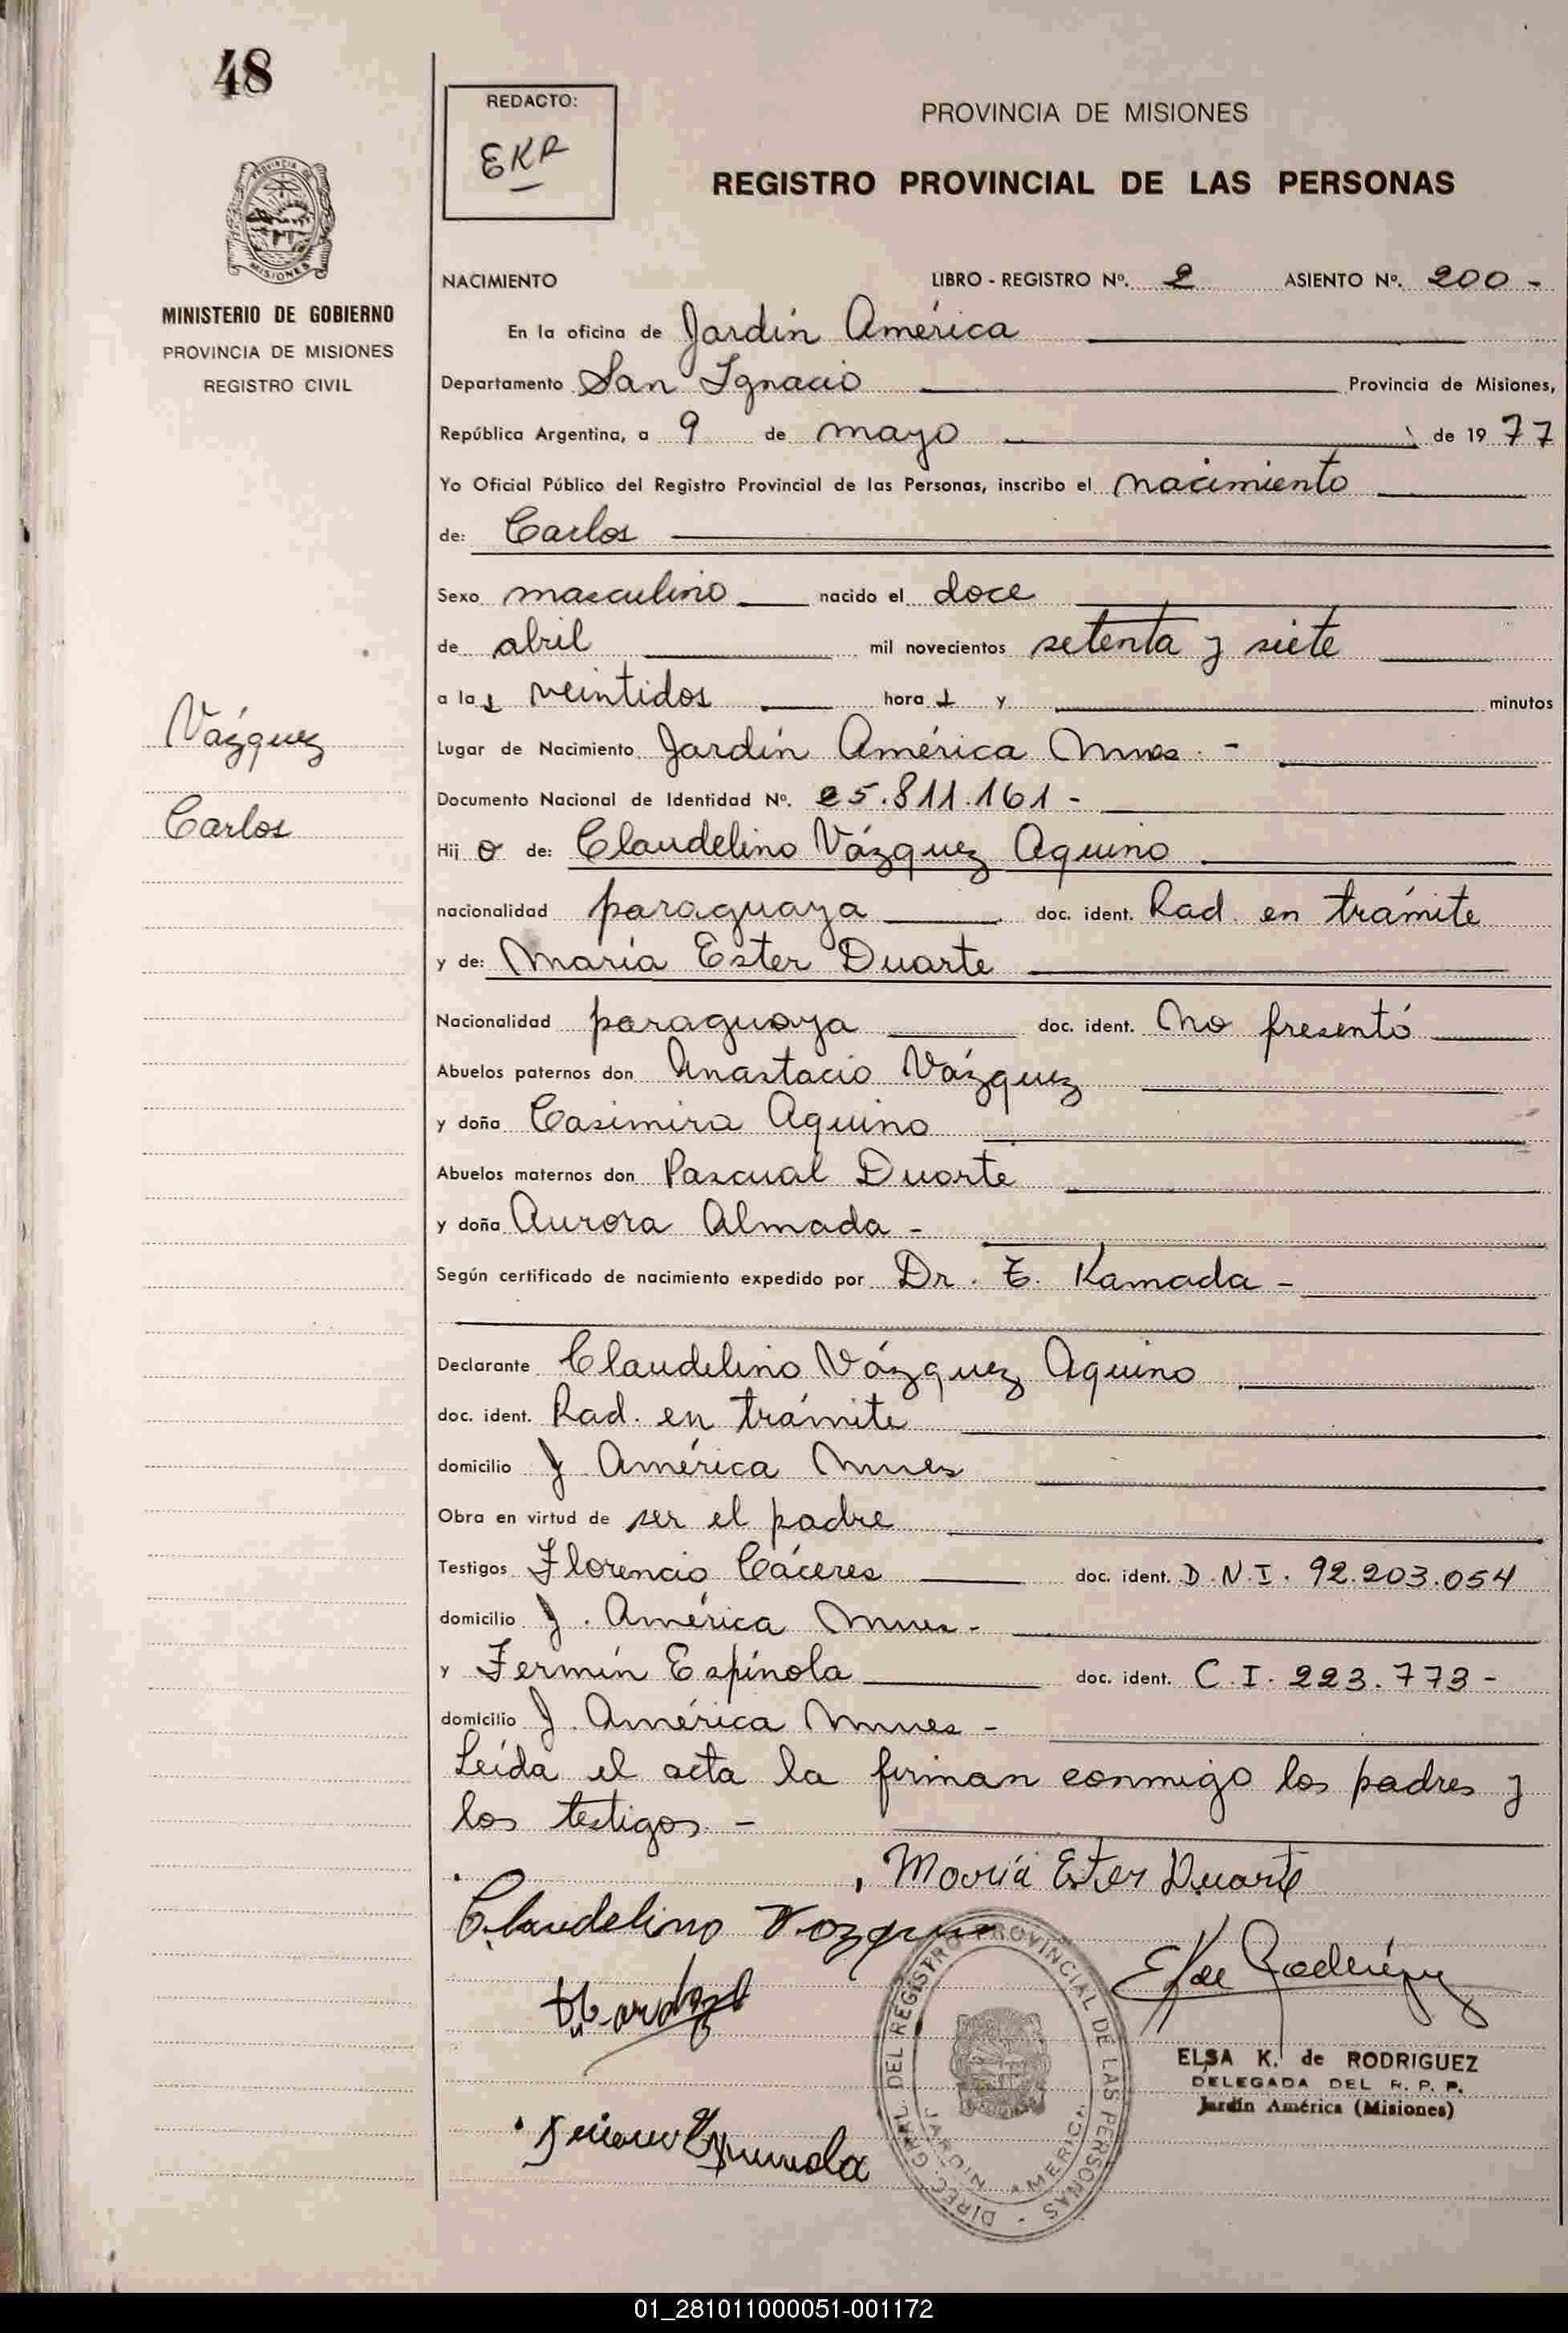 48
REDACTO:
EKR
PROVINCIA DE MISIONES
REGISTRO PROVINCIAL DE LAS PERSONAS
PROVINCIA DE
MISIONES
MINISTERIO DE GOBIERNO
PROVINCIA DE MISIONES
REGISTRO CIVIL
NACIMIENTO LIBRO - REGISTRO Nº. 2 ASIENTO Nº. 200 -
En la oficina de Jardín América
Departamento San Ignacio Provincia de Misiones,
República Argentina, a 9 de mayo de 1977
Yo Oficial Público del Registro Provincial de las Personas, inscribo el nacimiento
de: Carlos
Sexo masculino nacido el doce
de abril mil novecientos setenta y siete
a las veintidos horas y minutos
Vázquez
Carlos
Lugar de Nacimiento Jardín América Mnes. -
Documento Nacional de Identidad Nº. 25.811.161 -
Hijo de: Claudelino Vázquez Aquino
nacionalidad paraguaya doc. ident. Rad. en trámite
y de: María Ester Duarte
Nacionalidad paraguaya doc. ident. No presentó
Abuelos paternos don Anastacio Vázquez
y doña Casimira Aquino
Abuelos maternos don Pascual Duarte
y doña Aurora Almada -
Según certificado de nacimiento expedido por Dr. E. Kamada -
Declarante Claudelino Vázquez Aquino
doc. ident. Rad. en trámite
domicilio J. América Mnes
Obra en virtud de ser el padre
Testigos Florencio Cáceres doc. ident. D.N.I. 92.203.054
domicilio J. América Mnes. -
y Fermín Espínola doc. ident. C.I. 223.773 -
domicilio J. América Mnes -
Leída el acta la firman conmigo los padres y
los testigos. -
María Ester Duarte
Claudelino Vazquez
E K de Rodríguez
DIREC. GRAL. DEL REGISTRO PROVINCIAL DE LAS PERSONAS -
JARDIN AMERICA
ELSA K. de RODRIGUEZ
DELEGADA DEL R. P. P.
Jardín América (Misiones)
01_281011000051-001172